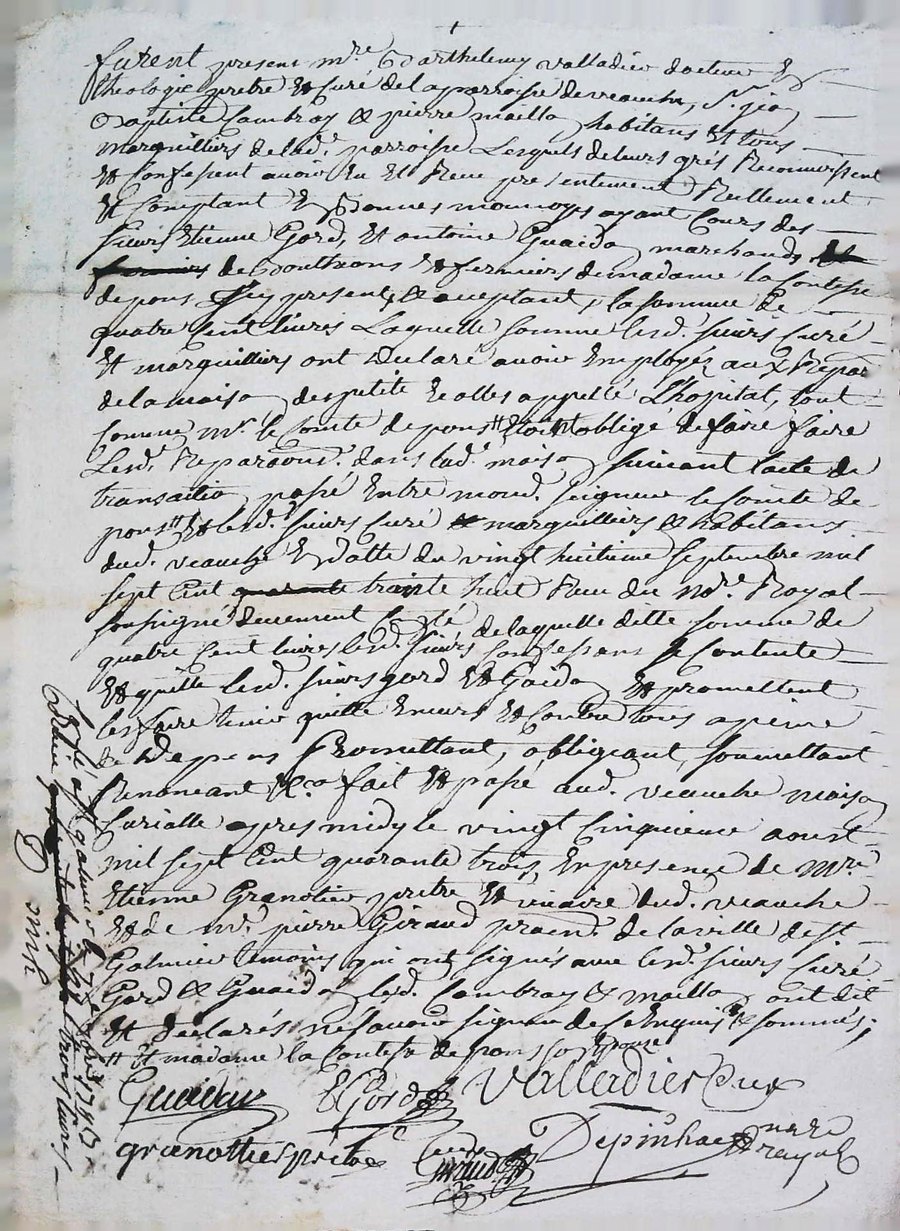 furent present mre Barthelemy valladier docteur En
theologie pretre Et Curé de la parroisse de veauche, Sr jean
Baptiste Cambray Et pierre maillon habitans Et tous
marguilliers de lad. parroisse Lesquels de leurs grés Reconnoissent
Et Confessent avoir Eu Et Receu presentement Reellement
Et Comptant En Bonnes monnoyes ayant Cours des
sieurs Etienne Gord, Et antoine Guaidon marchands
de Boutheons Et fermiers de madame la Contesse
de pons Icy presents, Et aceptant, la somme de
quatre Cent livres Laquelle somme lesd. sieurs Curé
Et marguilliers ont declaré avoir Employez aux Repaõns
de la maison des petite Ecolles appellée L'hopital, tout
Comme Mr. le Comte de pons Etoit obligé de faire faire
Lesd. Reparaõns. dans lad. maison suivant l'acte de
transaction passé Entre moud. seigneur le Comte de
pons Et lesd. sieurs Curé Et marguilliers Et habitans
dud. veauche En datte du vingt huitieme septembre mil
sept Cent quarante trante huit Receu du nore. Royal
soussigné deuement Controlé de laquelle ditte somme de
quatre Cent livres lesd. sieurs Confessans se Contente
Et quitte lesd. sieurs gord Et Gaidon Et promettent
les faire tenir quitte Envers Et Contre tous a peine
de Depens promettant, obligeant, soumettant
Renonceant &c.a fait Et passé aud. veauche maison
Curialle apres midy le vingt Cinquieme aoust
mil sept Cent quarante trois, En presence de mre
Etienne Granotier pretre Et vicaire dud. veauche
Et de Mr. pierre Giraud praen. de la ville de St
Galmier temoins qui ont signés avec lesd. sieurs Curé
Gord & Guaidon, lesd. Cambray & maillon ont dit
Et declarés ne savoir signer de ce Enquis Et sommés;
Et madame la Contesse de pons son Epouse
Guaidon EGord Valladier Curé
granottier pretre Giraud Depinhac nore royal
Con.lé a St galmier le 7e 1743
Reçu trois livres